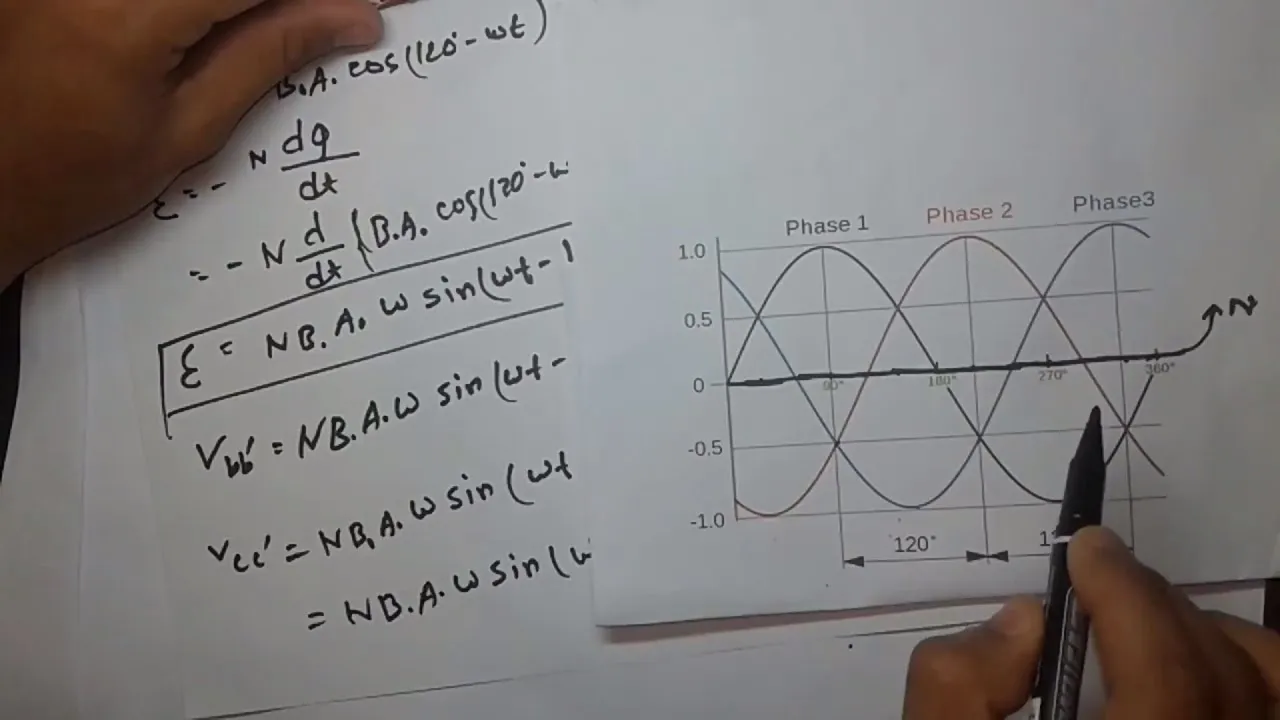 B.A. cos(120° - ωt)
ε = - N dφ/dt
= - N d/dt { B.A. cos(120° - ω
ε = NB.A. ω sin(ωt - 1
Vbb' = NB.A.ω sin(ωt -
Vcc' = NB.A.ω sin(ωt
= NB.A.ω sin(ω
Phase 1 Phase 2 Phase3
1.0
0.5
N
0
90° 180° 270° 360°
-0.5
-1.0
120°